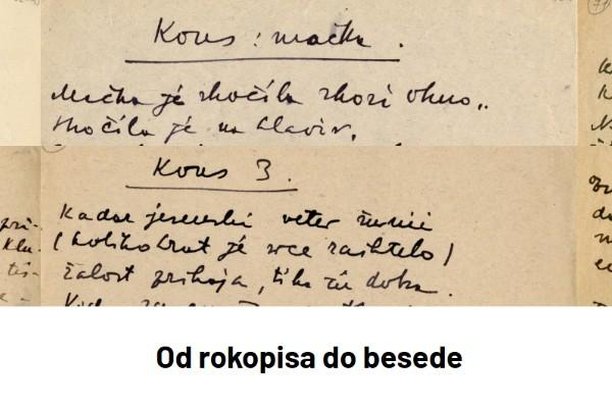 Kons : mačka.
Mačka je skočila skozi okno..
skočila je na klavir.
Kons 3.
Kadar jesenski veter
(kolikokrat je srce zaihtelo)
žalost prihaja, tiha
Od rokopisa do besede